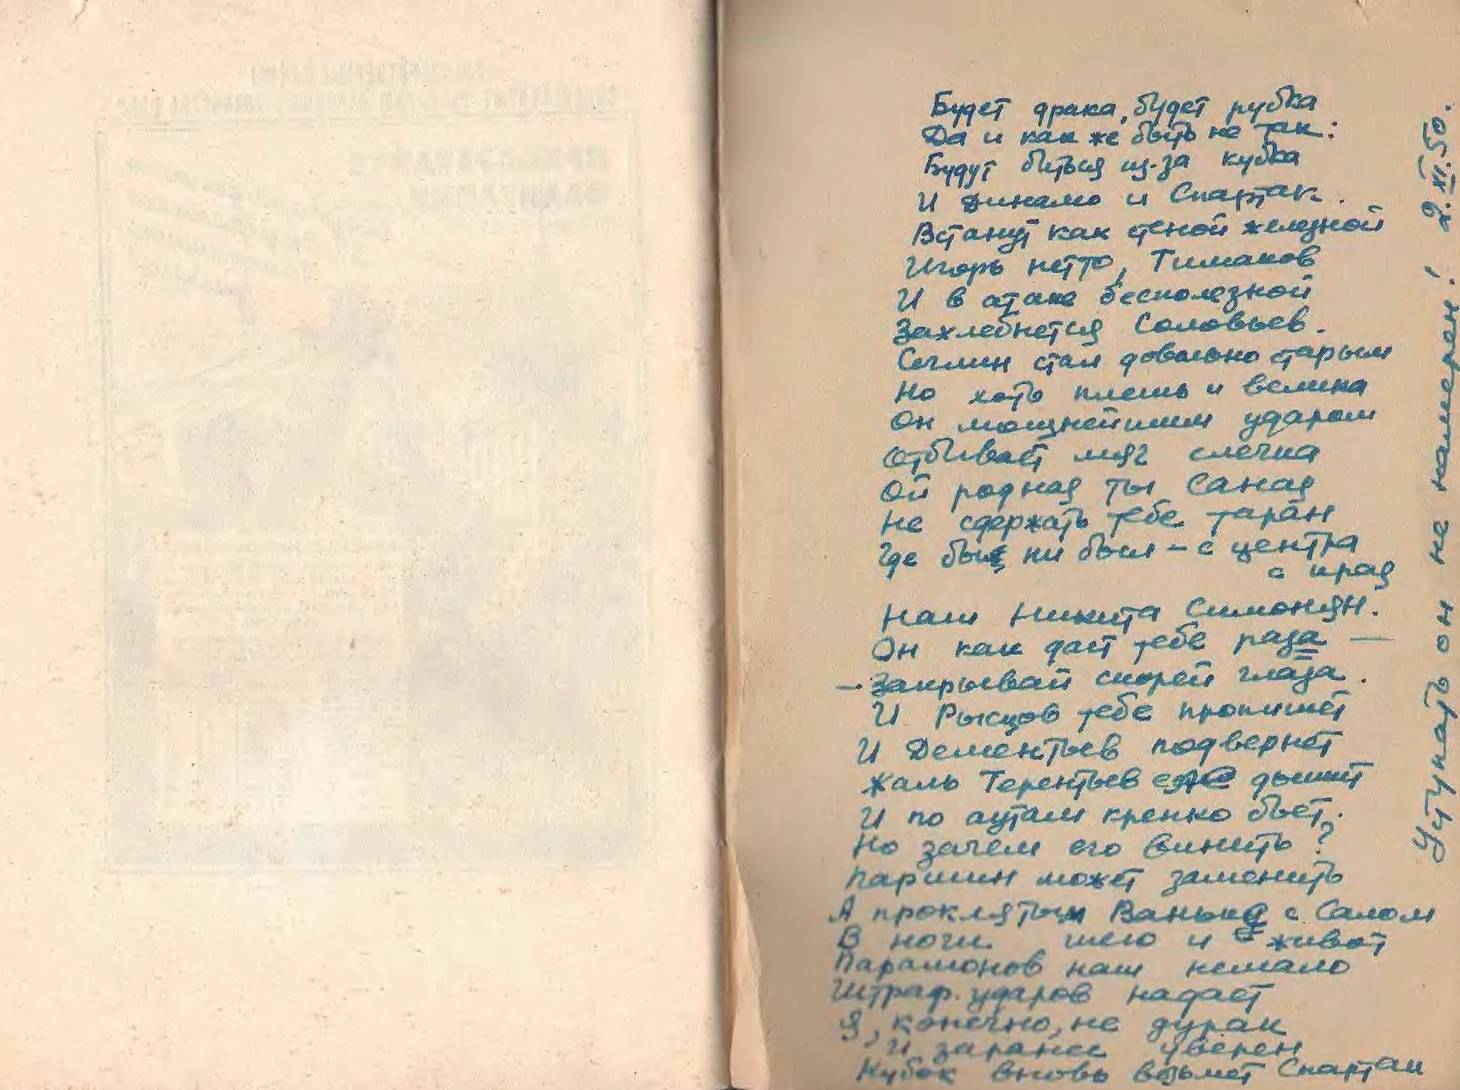 Будет драка, будет рубка
Да и как же быть не так:
Будут биться из-за кубка
И Динамо и Спартак.
Встанут как стеной железной
Игорь нетто, Тимаков
И в атаке бесполезной
Захлебнется Соловьев.
Сеглин стал довольно старым
Но хоть плешь и велика
Он мощнейшим ударом
Отбивает мяч слегка
Ой родная ты Саная
Не сдержать тебе таран
Где бы ни был – с центра
с края
Наш Никита Симонян.
Он как даст тебе раза —
— Закрывай скорей глаза.
И Рысцов тебе пропишет
И Дементьев подвернет
Жаль Терентьев еле дышит
И по аутам крепко бьет.
Но зачем его винить?
Паршин может заменить
А проклятым Ванька с Салом
В ноги шею и живот
Парамонов наш немало
Штраф. ударов надает
Я, конечно, не дурак
И заранее уверен
Кубок вновь возьмет Спартак
Уступать он не намерен! 2.XI.50.